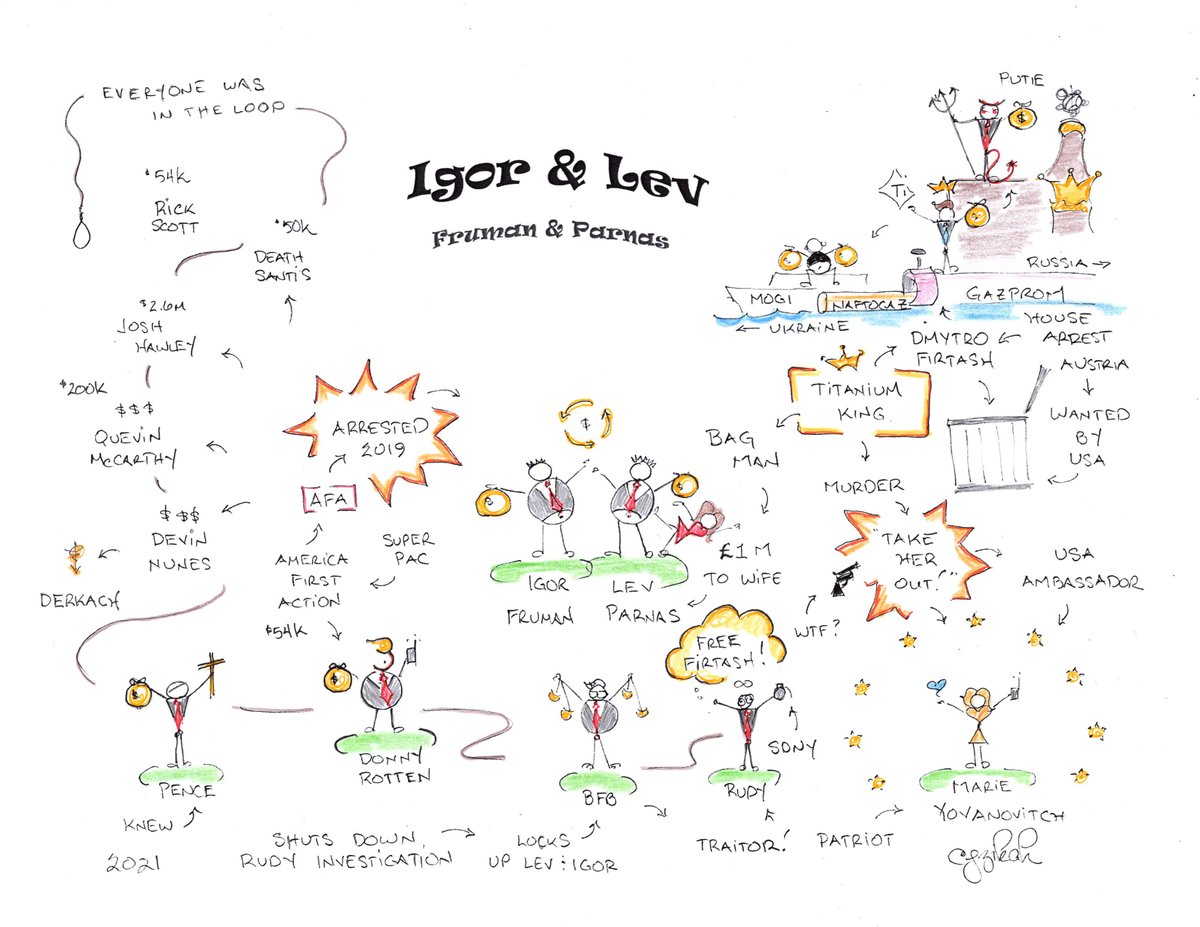 EVERYONE WAS
IN THE LOOP
$54K
RICK
SCOTT
$50K
DEATH
SANTIS
$2.6M
JOSH
HAWLEY
$200K
$$$
QUEVIN
McCARTHY
$$$
DEVIN
NUNES
DERKACH
Igor & Lev
Fruman & Parnas
ARRESTED
2019
AFA
SUPER
PAC
AMERICA
FIRST
ACTION
$54K
$
$
$
IGOR
FRUMAN
LEV
PARNAS
PUTIE
$
Ti
$
$
$
RUSSIA
MOGI
NAFTOGAZ
GAZPROM
UKRAINE
DMYTRO
FIRTASH
HOUSE
ARREST
AUSTRIA
WANTED
BY
USA
TITANIUM
KING
BAG
MAN
£1M
TO WIFE
MURDER
"TAKE
HER
OUT!"
WTF?
USA
AMBASSADOR
FREE
FIRTASH!
$
PENCE
KNEW
2021
$
DONNY
ROTTEN
SHUTS DOWN
RUDY INVESTIGATION
BFB
LOCKS
UP LEV & IGOR
RUDY
SONY
TRAITOR!
PATRIOT
MARIE
YOVANOVITCH